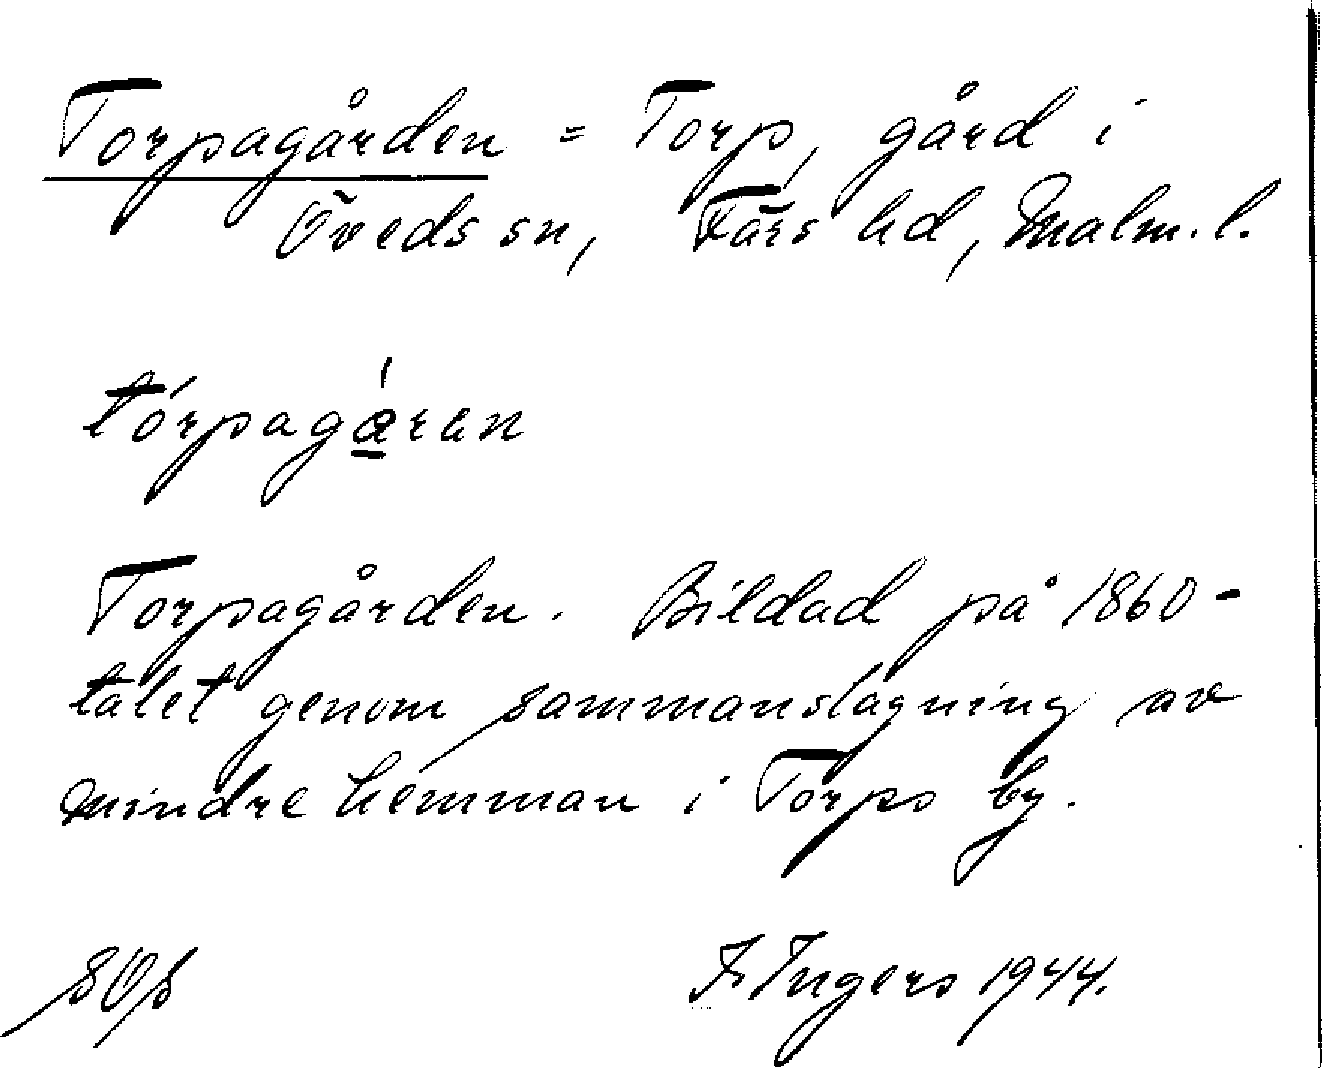 Torpagården = Torp, gård i
Öveds sn, Färs hd, Malm. l.
tórpagá̱ren
Torpagården. Bildad på 1860-
talet genom sammanslagning av
mindre hemman i Torps by.
F Ingers 1944.